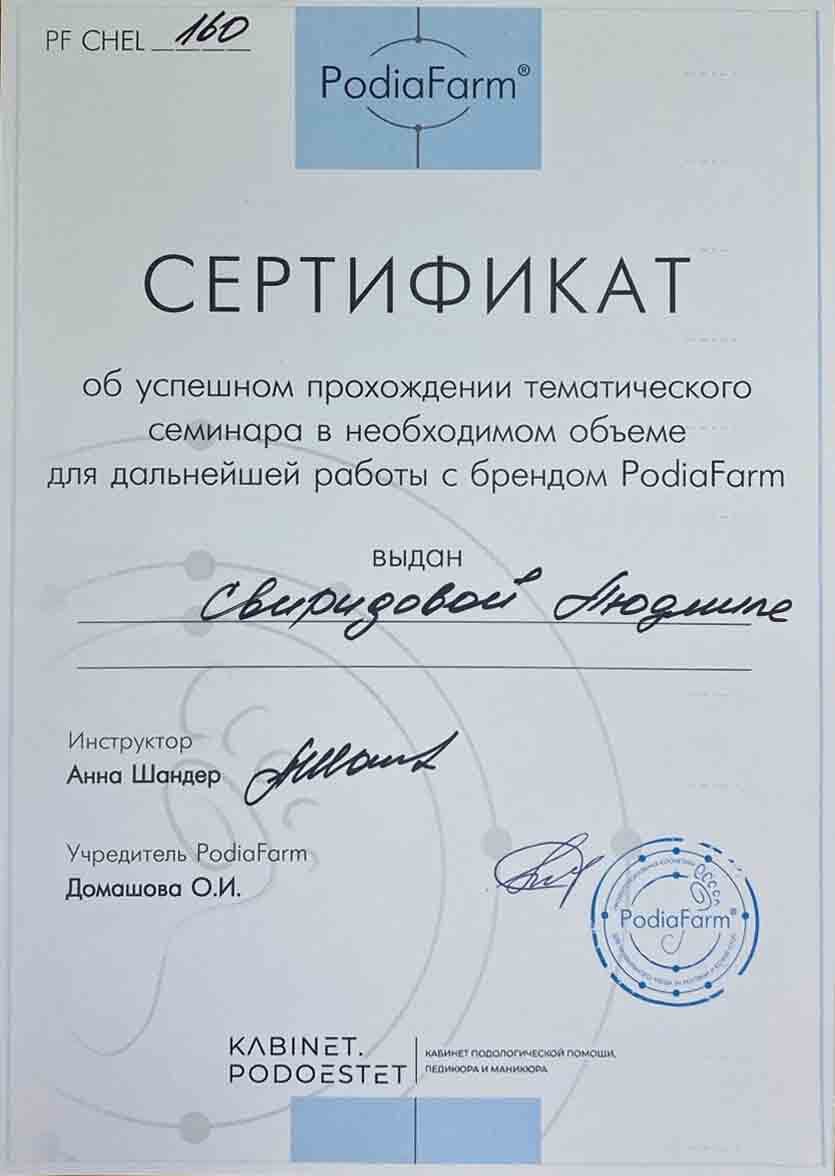 PF CHEL 160
PodiaFarm®
СЕРТИФИКАТ
об успешном прохождении тематического
семинара в необходимом объеме
для дальнейшей работы с брендом PodiaFarm
выдан
Свиридовой Людмиле
Инструктор
Анна Шандер
Учредитель PodiaFarm
Домашова О.И.
PodiaFarm®
KABINET.
PODOESTET
КАБИНЕТ ПОДОЛОГИЧЕСКОЙ ПОМОЩИ,
ПЕДИКЮРА И МАНИКЮРА